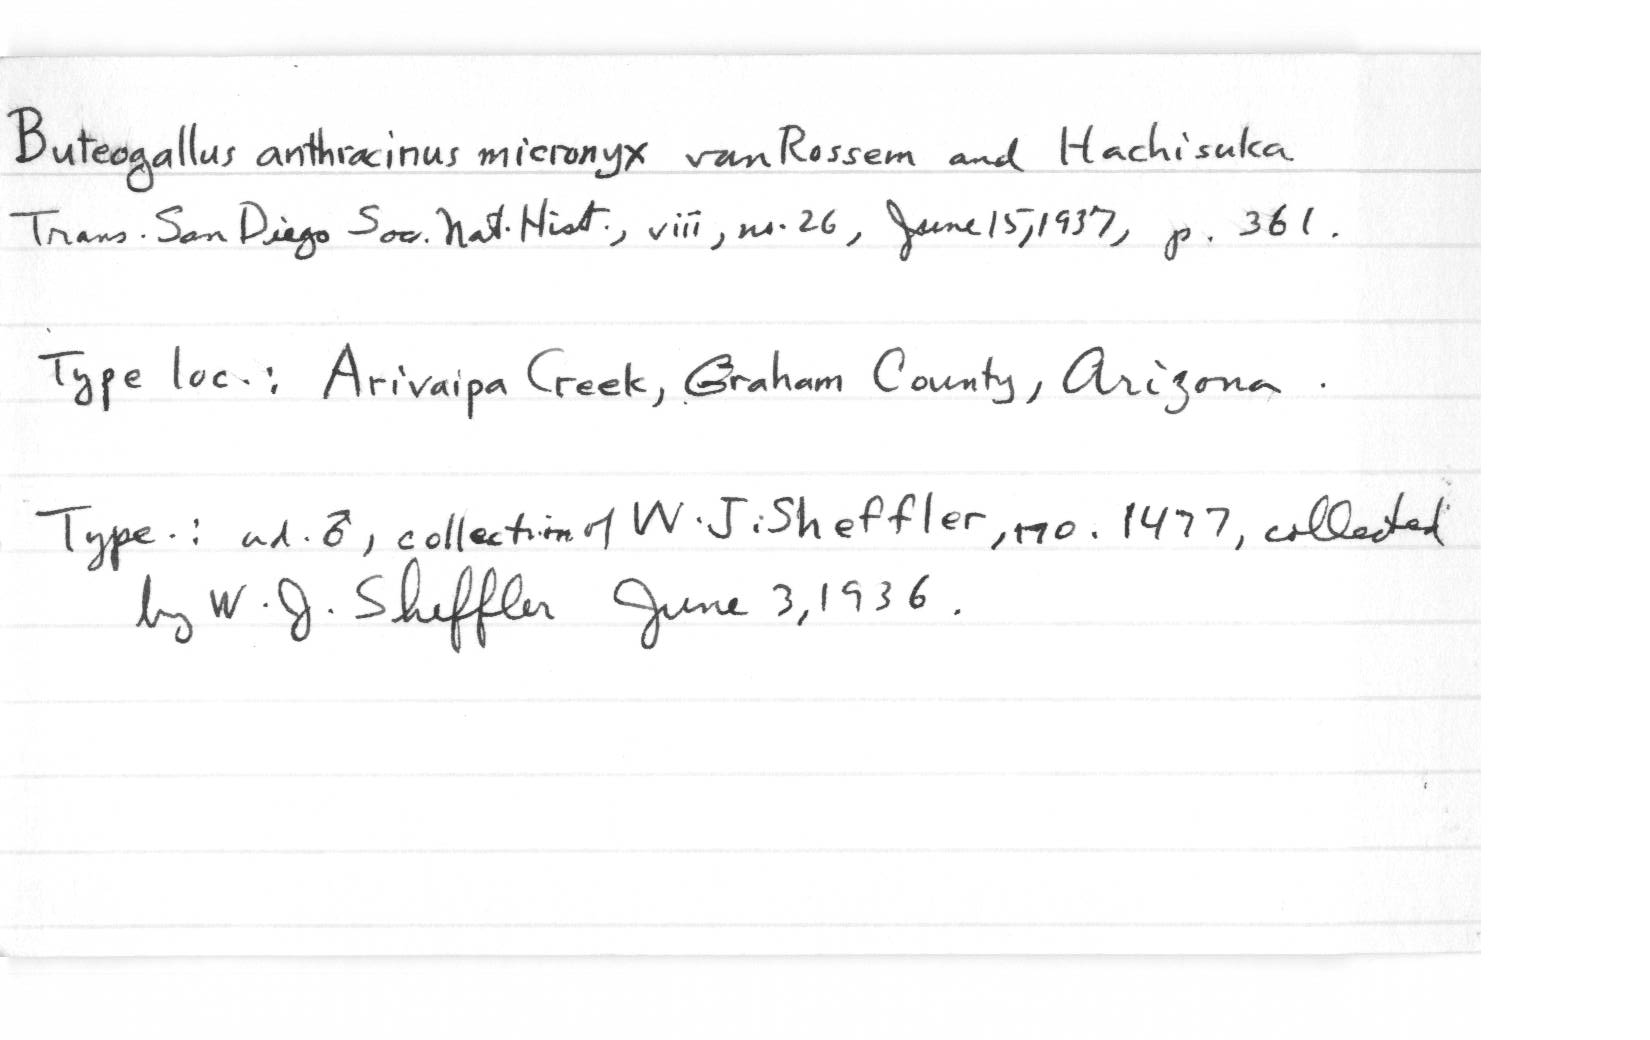 Buteogallus anthracinus micronyx van Rossem and Hachisuka
Trans. San Diego Soc. Nat. Hist., viii, no. 26, June 15, 1937, p. 361.
Type loc.: Arivaipa Creek, Graham County, Arizona.
Type.: ad. ♂, collection of W. J. Sheffler, no. 1477, collected
by W. J. Sheffler June 3, 1936.